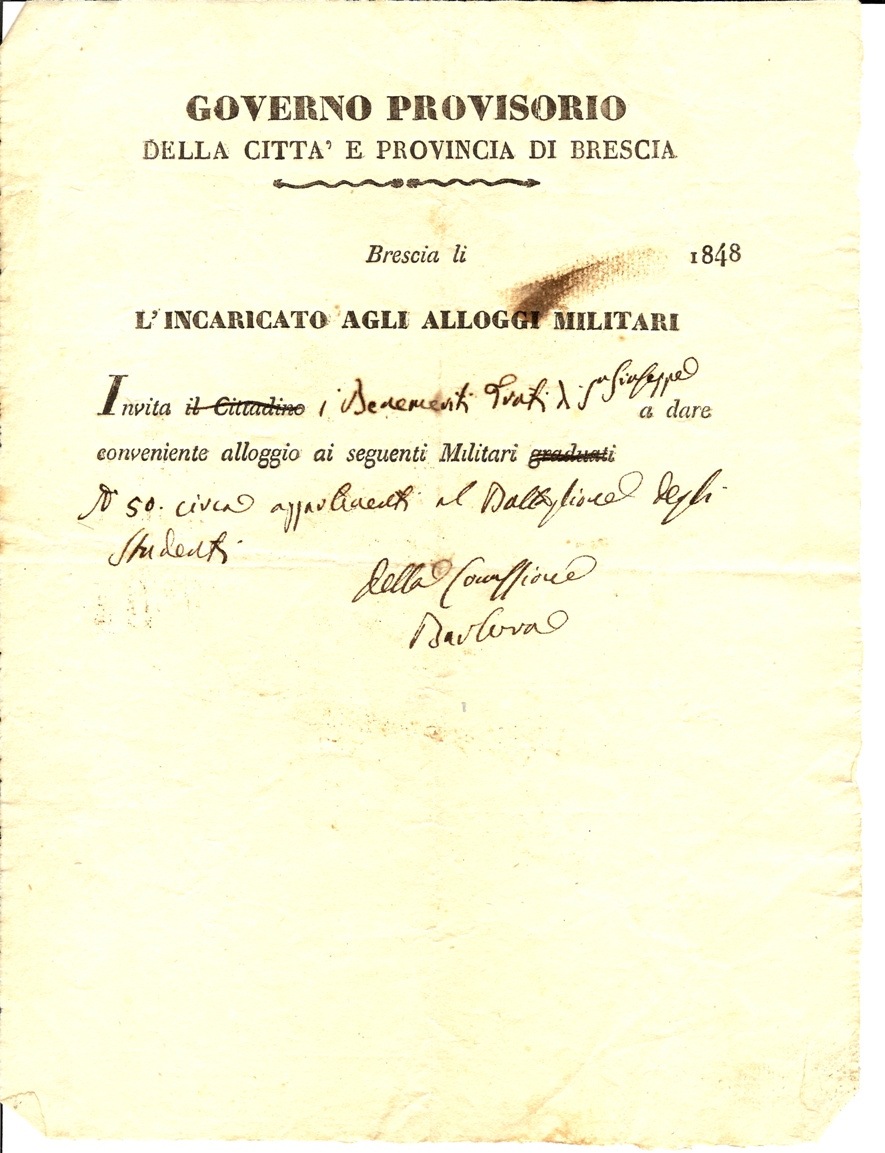 GOVERNO PROVISORIO
DELLA CITTA' E PROVINCIA DI BRESCIA
Brescia li 1848
L'INCARICATO AGLI ALLOGGI MILITARI
Invita il Cittadino i Benemeriti Frati di Sn Giuseppe a dare
conveniente alloggio ai seguenti Militari graduati
N 50. circa appartenenti al Battaglione degli
Studenti
della Comissione